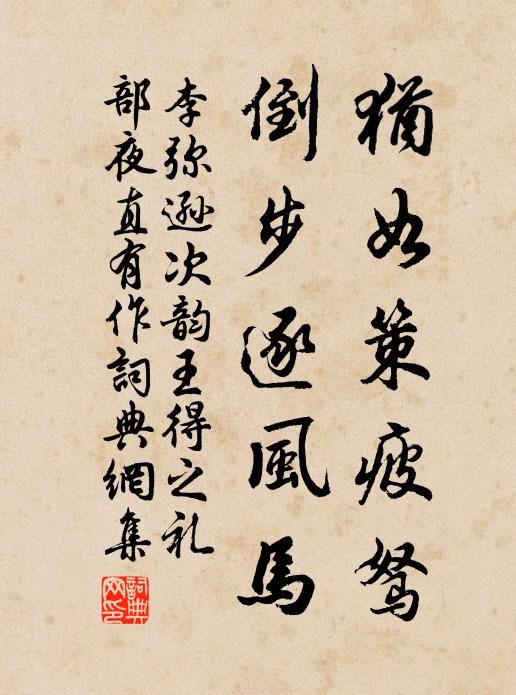 猶如策疲駑
倒步逐風馬
李弥遜次韵王得之礼
部夜直有作詞典網集
詞典网印